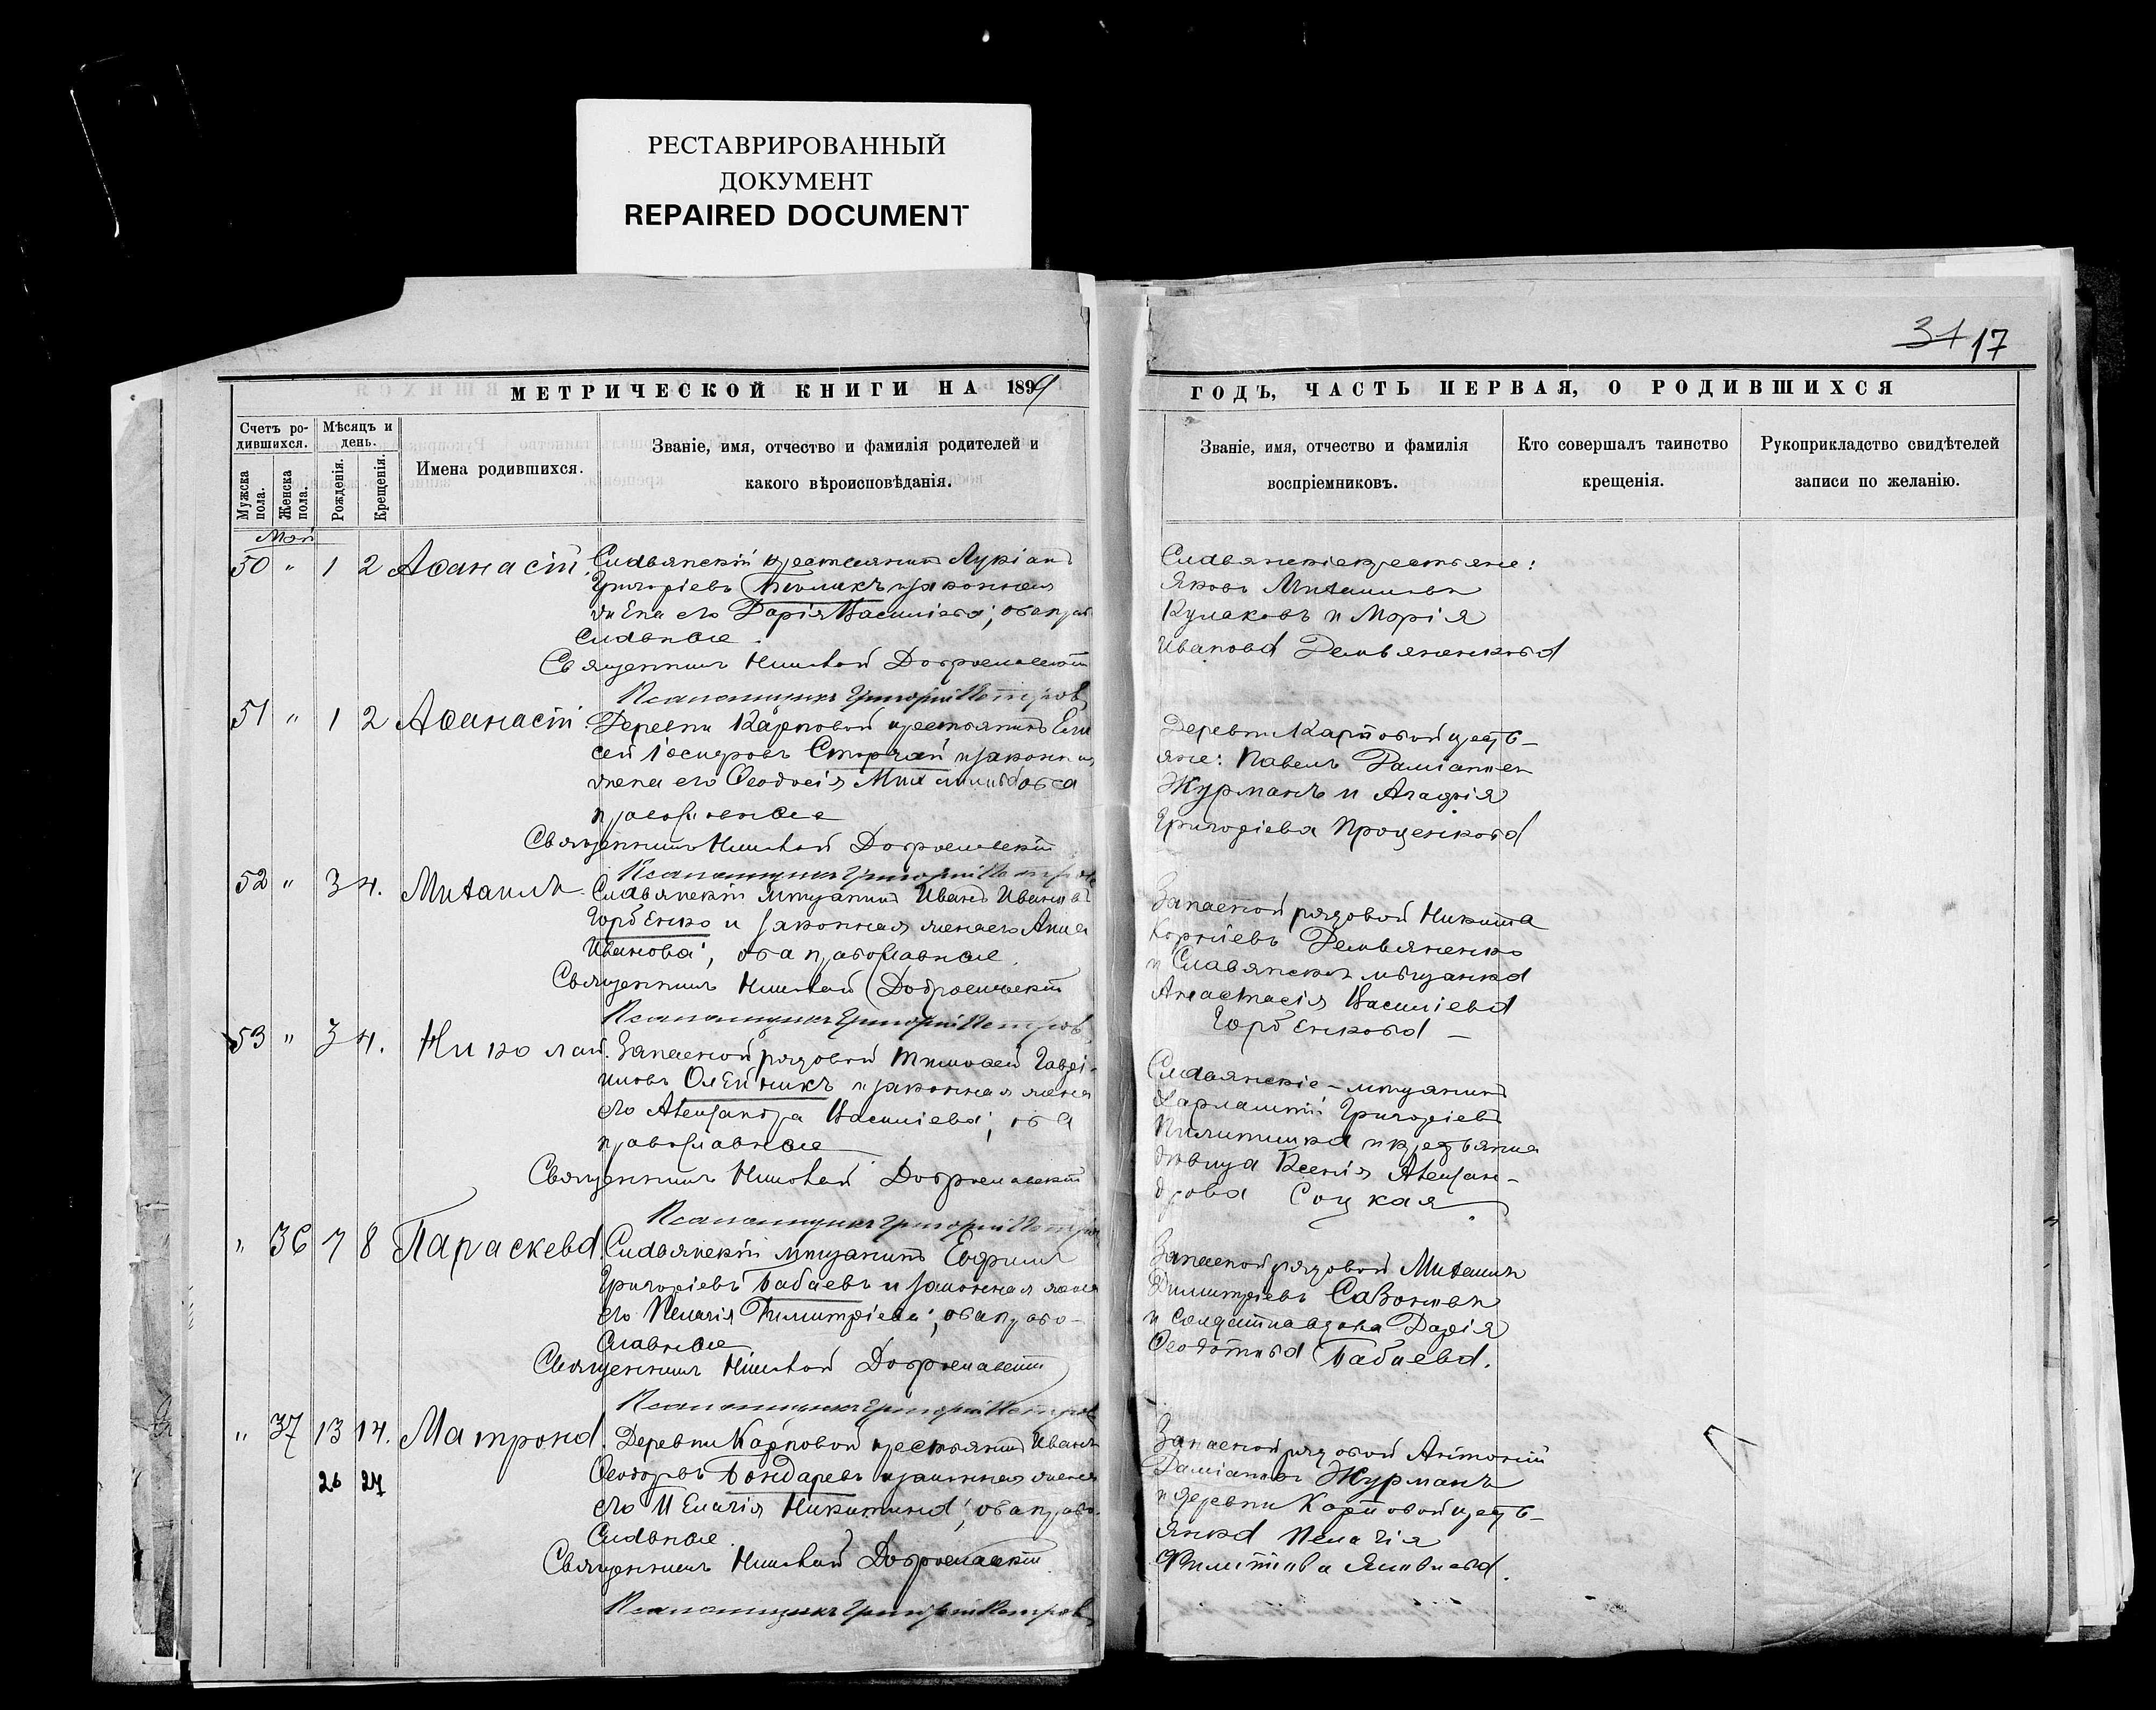 РЕСТАВРИРОВАННЫЙ
ДОКУМЕНТ
REPAIRED DOCUMENT
31 17
МЕТРИЧЕСКОЙ КНИГИ НА 1899
Счетъ ро-
дившихся.
Мѣсяцъ и
день.
Мужска
пола.
Женска
пола.
Рожденія.
Крещенія.
Имена родившихся.
Званіе, имя, отчество и фамилія родителей и
какого вѣроисповѣданія.
Май
50 " 1 2 Аѳанасій Славянскій крестьянинъ Лукіанъ
Григоріевъ и законная
жена его Дарія Василіева; оба право
славные.
Священникъ Николай
Псаломщикъ Григорій Петровъ
51 " 1 2 Аѳанасій Деревни Карповой крестьянинъ Ели
сей Іосифовъ Сторчай и законная
жена его Ѳеодосія
православные
Священникъ Николай
Псаломщикъ Григорій Петровъ
52 " 3 4. Михаилъ Славянскій мѣщанинъ Иванъ Ивановъ
Горбенко и законная жена его Анна
Иванова; оба православные.
Священникъ Николай
Псаломщикъ Григорій Петровъ
53 " 3 4. Николай. Запасной рядовой Тимоѳей Гаврі-
иловъ Олейникъ и законная жена
его Александра Василіева; оба
православные
Священникъ Николай
Псаломщикъ Григорій Петровъ
" 36 7 8 Параскева Славянскій мѣщанинъ Ефримъ
Григоріевъ Бабаевъ и законная жена
его Пелагія Димитріева; оба право-
славные
Священникъ Николай
Псаломщикъ Григорій Петровъ
" 37 13 14. Матрона. Деревни Карповой крестьянинъ Иванъ
Ѳеодоровъ Бондаревъ и законная жена
26 27
его Пелагія Никитина; оба право-
славные.
Священникъ Николай
Псаломщикъ Григорій Петровъ
ГОДЪ, ЧАСТЬ ПЕРВАЯ, О РОДИВШИХСЯ
Званіе, имя, отчество и фамилія
воспріемниковъ.
Кто совершалъ таинство
крещенія.
Рукоприкладство свидѣтелей
записи по желанію.
Славянскіе крестьяне:
Яковъ Михаиловъ
Кулаковъ и Марія
Иванова Демьяненкова
Деревни Карповой кресть-
яне: Павелъ Даміановъ
Журманъ и Агафія
Григоріева Проценкова
Запасной рядовой Никита
Корніевъ Демьяненко
и Славянская мѣщанка
Анастасія Василіева
Горбенкова -
Славянскіе - мѣщанинъ
Харлампій Григоріевъ
и крестьянка
дѣвица Ксенія Алексан-
дрова Соцкая.
Запасной рядовой Михаилъ
Димитріевъ
и солдатка вдова Дарія
Ѳеодотова Бабаева.
Запасной рядовой Антоній
Даміановъ Журманъ
и деревни Карповой кресть-
янка Пелагія
Филиппова